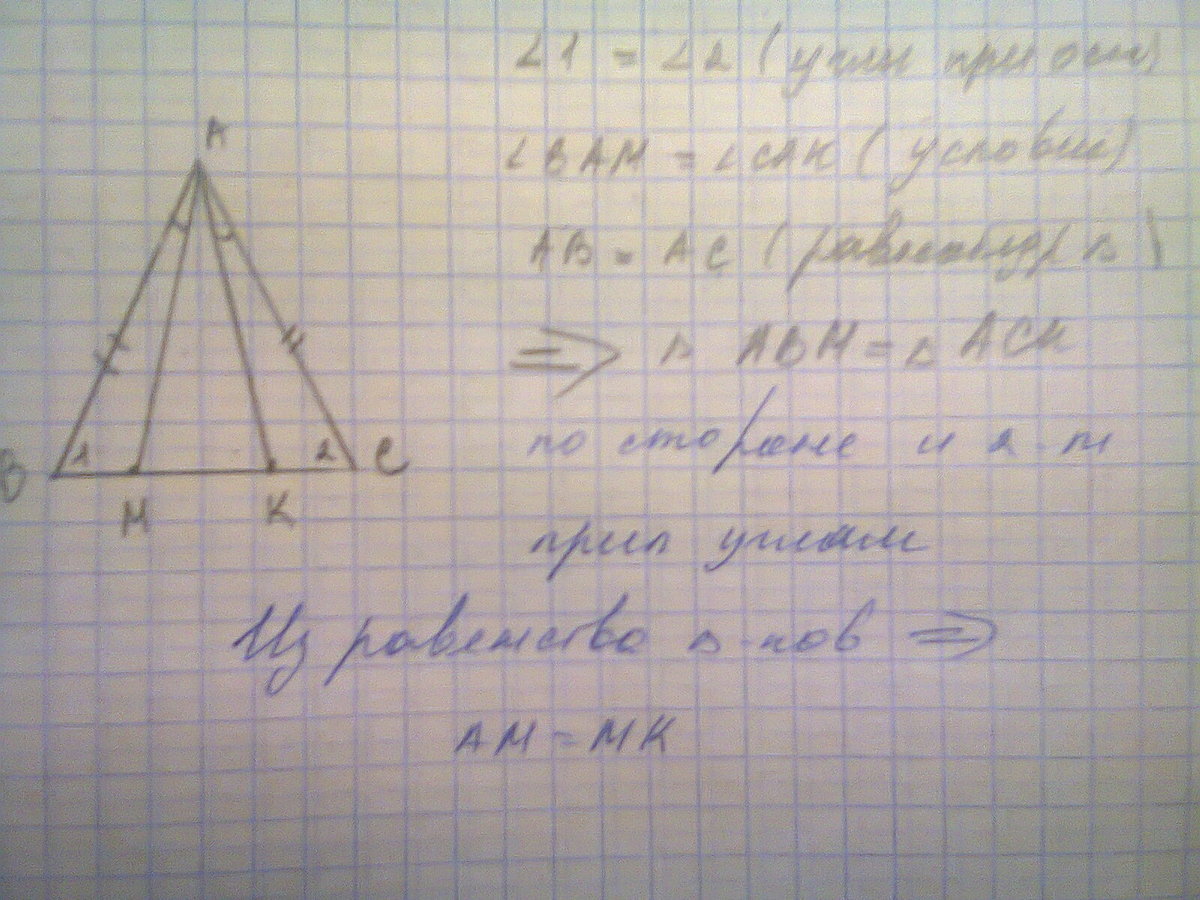 ∠1 = ∠2 (углы при осн)
∠BAM = ∠CAK (условие)
AB = AC (равнобедр Δ)
⇒ Δ ABM = Δ ACK
по стороне и 2-м
прил углам
Из равенства Δ-ков ⇒
AM = MK
A
B
1
2
C
M
K